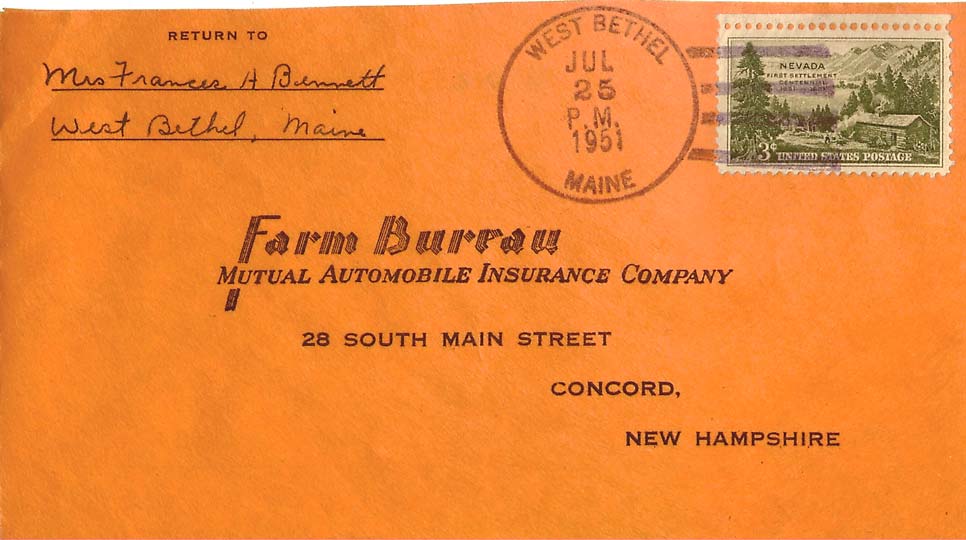 RETURN TO
Mrs Frances A Bennett
West Bethel, Maine
WEST BETHEL
JUL
25
P.M.
1951
MAINE
NEVADA
FIRST SETTLEMENT
CENTENNIAL
1851-1951
3¢ UNITED STATES POSTAGE
Farm Bureau
MUTUAL AUTOMOBILE INSURANCE COMPANY
28 SOUTH MAIN STREET
CONCORD,
NEW HAMPSHIRE